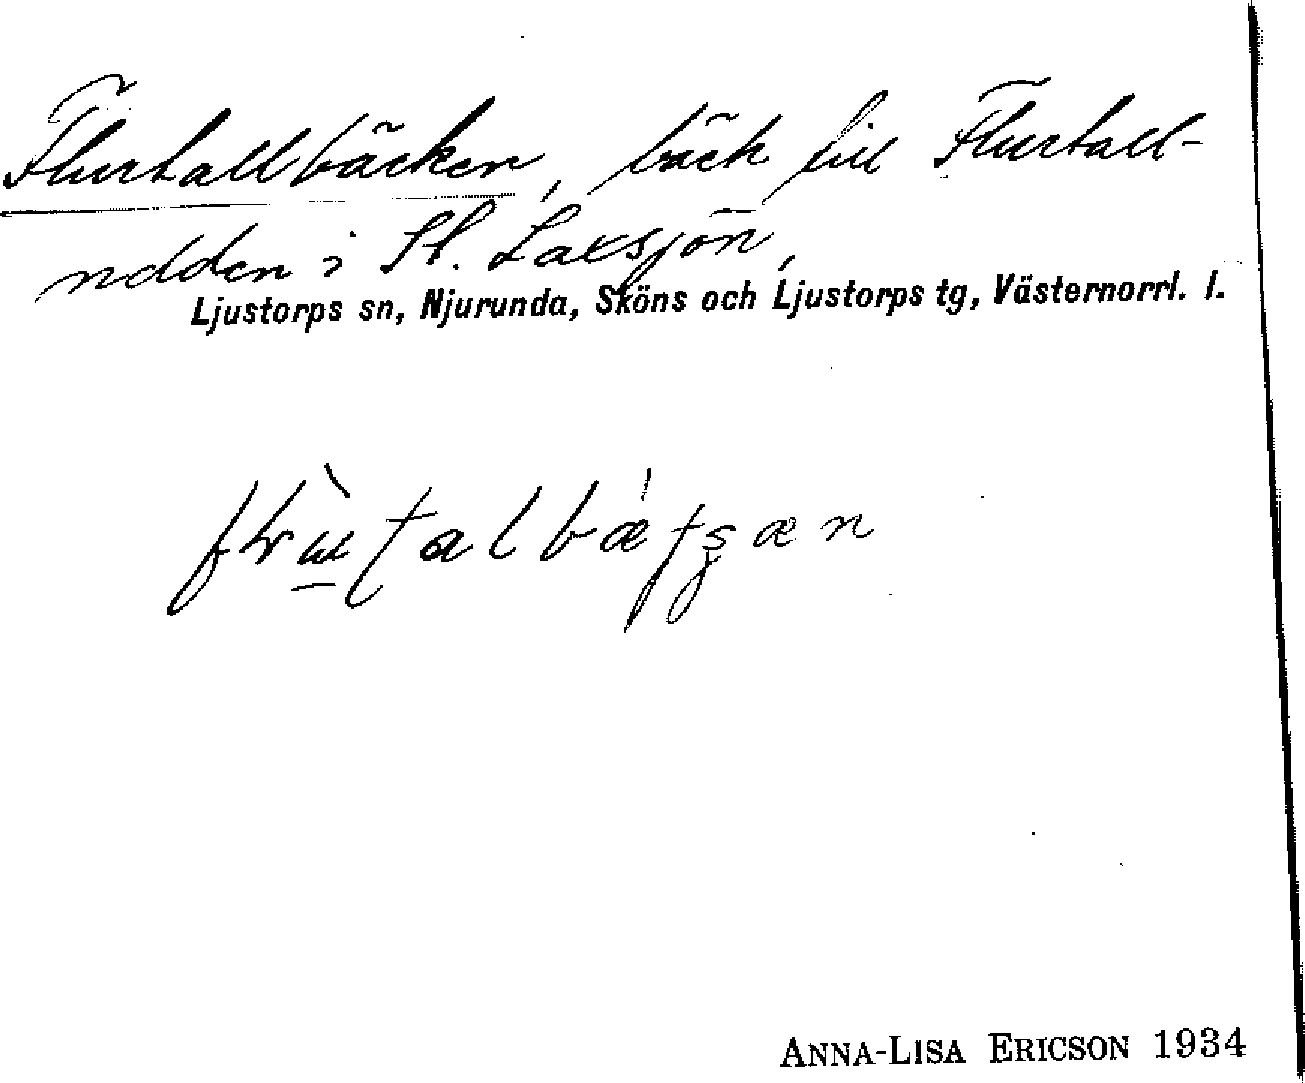 Flurtallbäcken, bäck till Flurtall-
udden i St. Laxsjön,
Ljustorps sn, Njurunda, Sköns och Ljustorps tg, Västernorrl. l.
ANNA-LISA ERICSON 1934